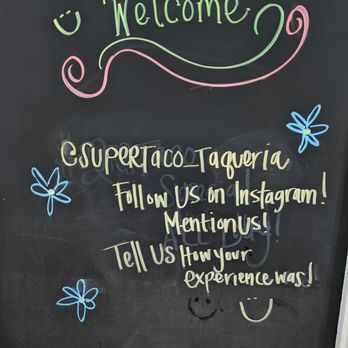 Welcome
@SUPERTACO_Taqueria
Follow Us on Instagram!
Mention Us!
Tell Us How your
experience was!